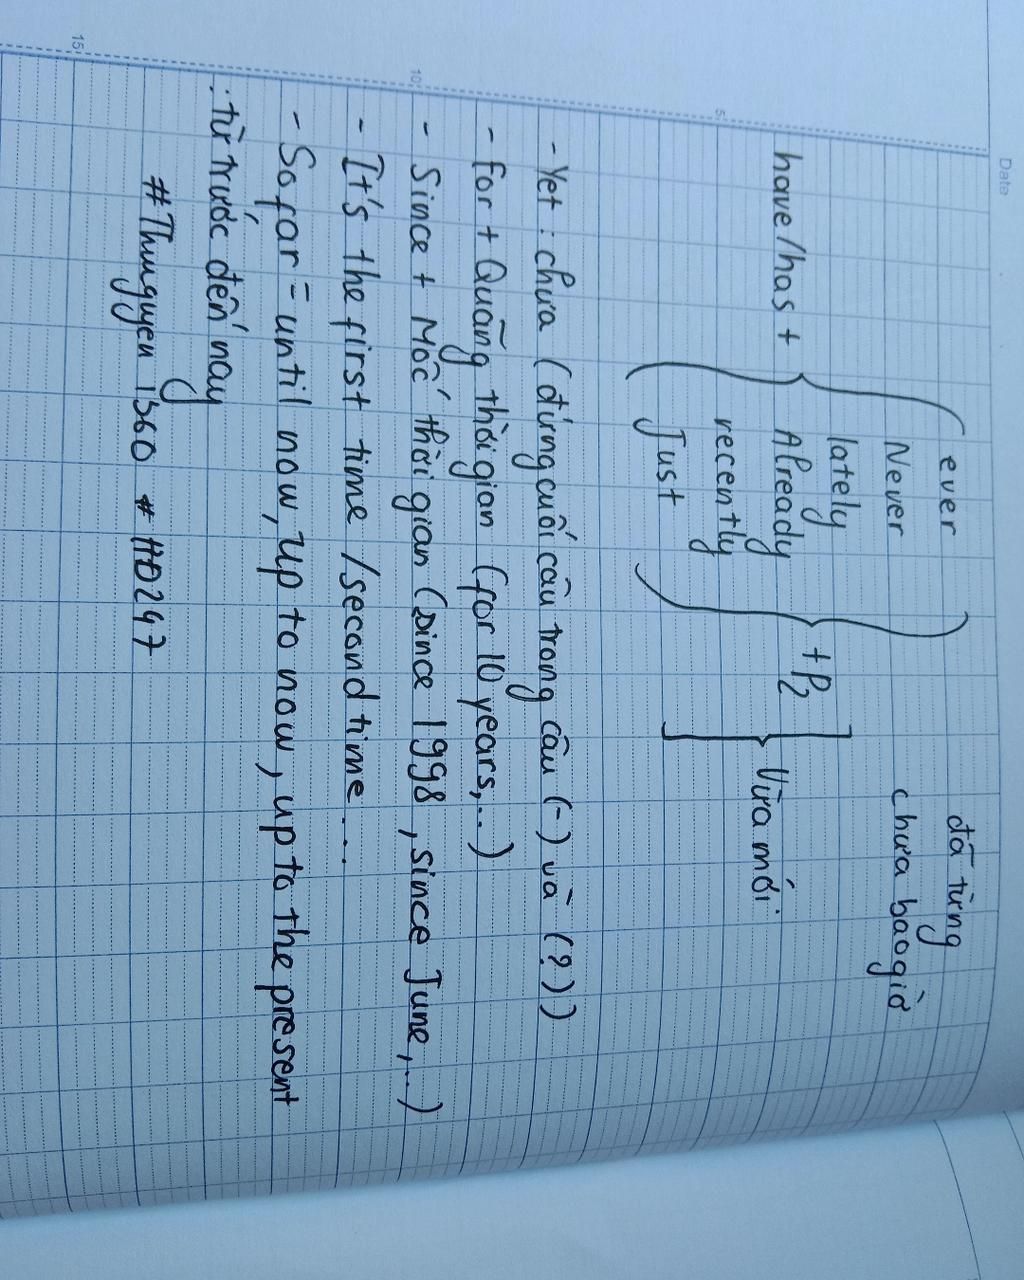 Date
ever đã từng
Never chưa bao giờ
lately
have/has + Already + P2
recently Vừa mới
Just
5
- Yet : chưa (đứng cuối câu trong câu (-) và (?))
- for + Quãng thời gian (for 10 years,...)
10
- Since + Mốc thời gian (since 1998, since June,...)
- It's the first time /second time ....
- So far = until now, up to now, up to the present
: từ trước đến nay
15
#Thuuguyen 1360 # HD247